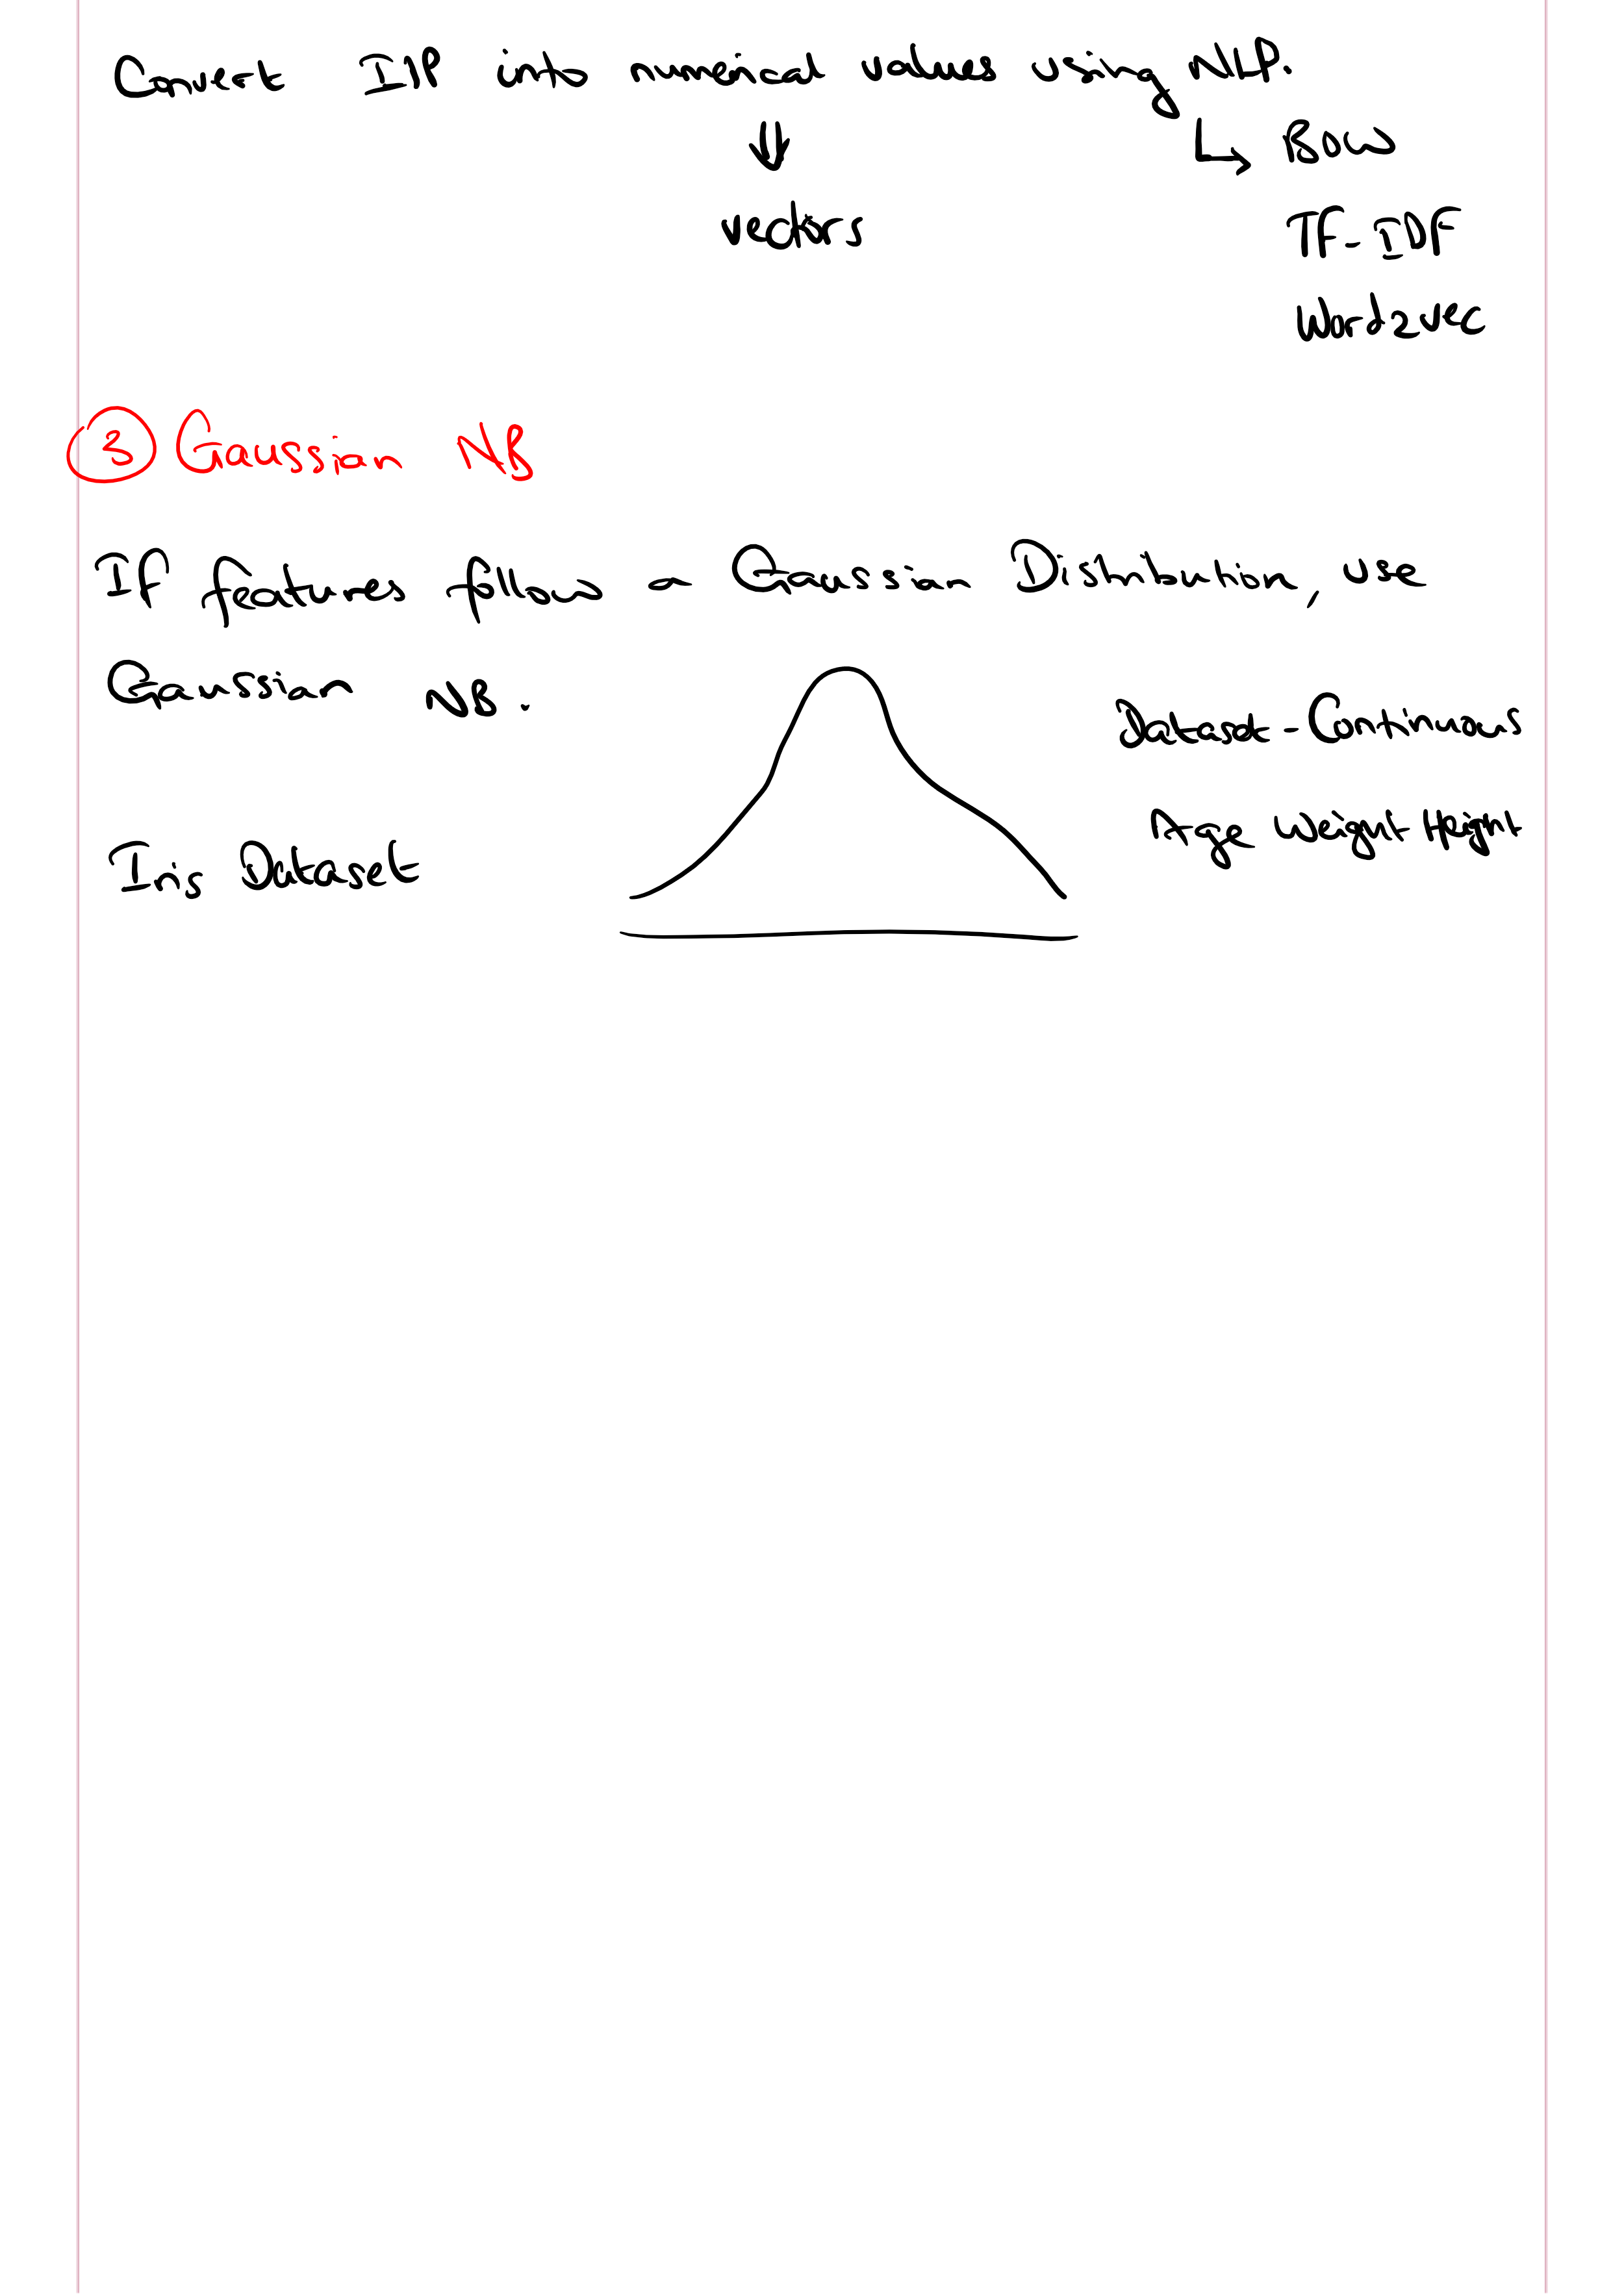 Convert I/P into numerical values using NLP.
⇓
↳ BOW
vectors
TF-IDF
Word2vec
③ Gaussian NB
If features follows a Gaussian Distribution, use
Gaussian NB.
Dataset - Continuous
Age Weight Height
Iris Dataset